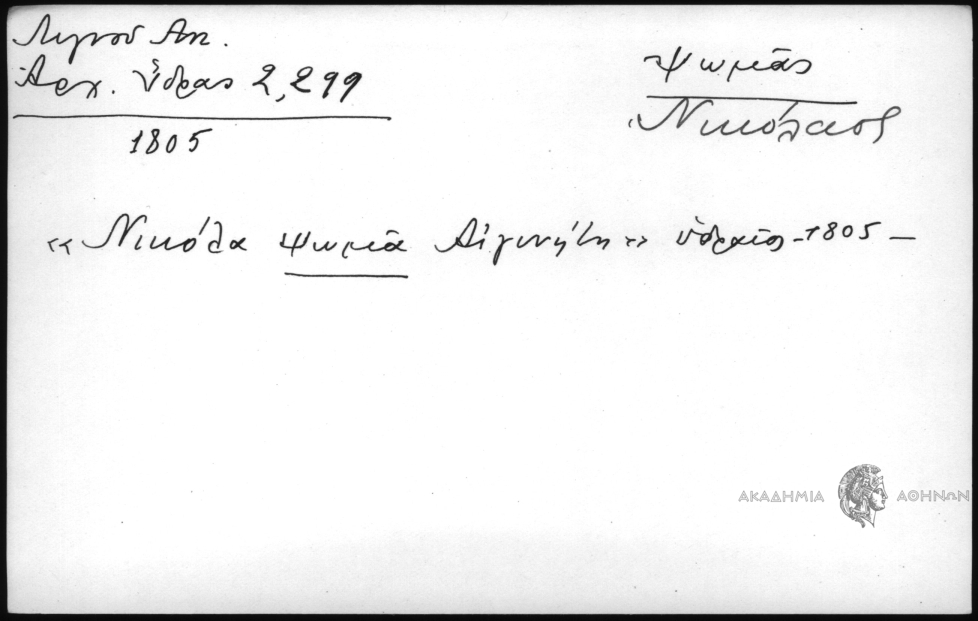 Λιγνού Αντ.
Αρχ. Ύδρας 2, 299
1805
Ψωμᾶς
Νικόλαος
«Νικόλα Ψωμᾶ Αἰγινήτη» Ὑδραῖος - 1805 -
ΑΚΑΔΗΜΙΑ ΑΘΗΝΩΝ